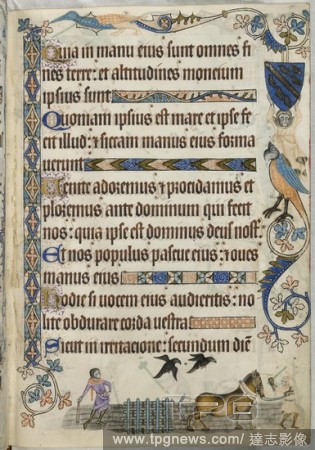 Quia in manu eius sunt omnes fi
nes terre: et altitudines moncium
ipsius sunt
Quoniam ipsius est mare et ipse fe
cit illud: ⁊ siccam manus eius forma
verunt
Venite adoremus et procidamus et
ploremus ante dominum qui fecit
nos: quia ipse est dominus deus nost̃.
Et nos populus pascue eius: ⁊ oves
manus eius
Hodie si vocem eius audieritis: no
lite obdurare corda vestra
Sicut in irritacione: secundum diē
TPG
www.tpgnews.com / 達志影像